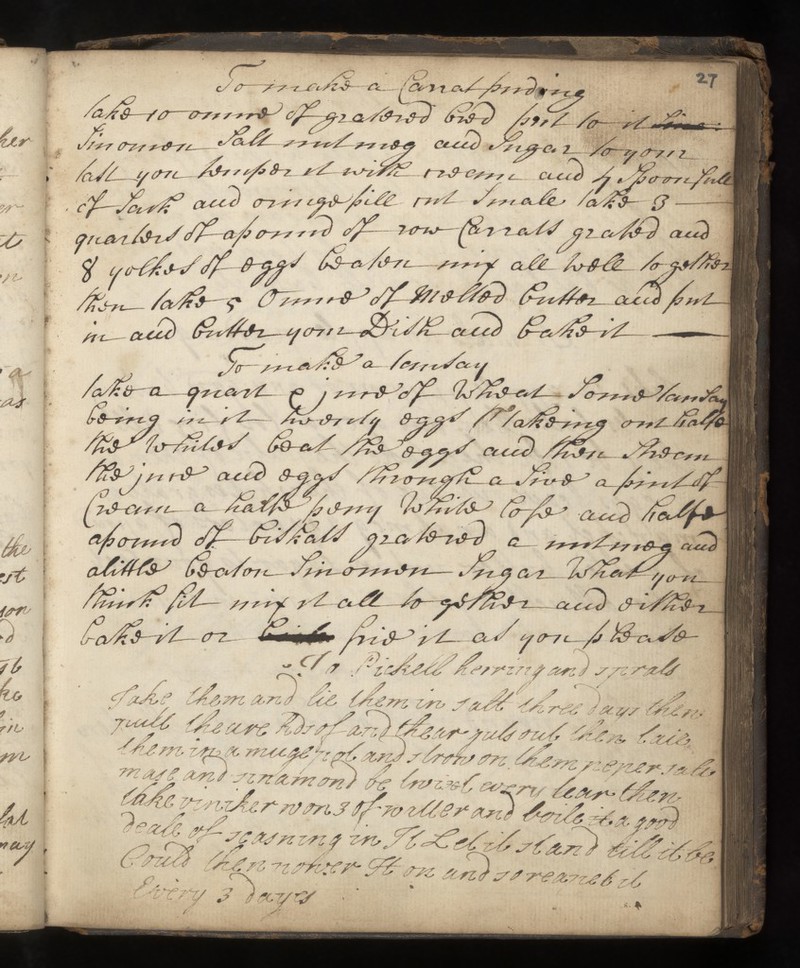 27
To make a Carrat puding
take 10 ounce of gratered bred put to it
Sinomon Salt nutmeg and Sugar to your
tast you temper it with cream and 4 Spoonfull
of Sack and oringe pill cut Smale take 3
quarters of a pound of row Carrats grated and
8 yolkes of eggs beaten mix all well together
then take 5 Ounce of Melted butter and put
in and butter your Dish and bake it
To make a tansay
take a quart juce of Wheat Some tansay
being in it twenty eggs takeing out halfe
the Whites beat the eggs and then Streem
the juce and eggs through a Sive a pint of
Cream a halfe peny White lofe and halfe
a pound of biskatt gratered a nutmeg and
a little beaton Sinomon Sugar What you
think fit mix it all together and either
bake it or frie it as you please
To Pickell herring and sprats
Take them and lie them in salt three days then
pull theare hds of and thear guts out then laie
them in a muge pot and strow on them peper salt
mase and sinamond be twixt every lear then
take viniker won 3 of watter and boile it a good
deale of seasning in It Let it stand till it be
Could then power It on and so reapet it
Every 3 dayes
her
a
as
the
son
in
may